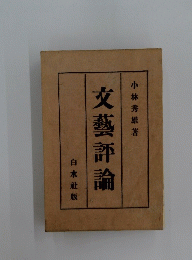 小林秀雄著
文藝評論
白水社版